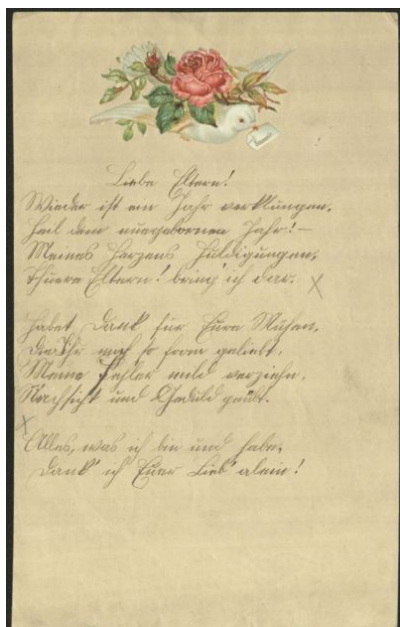 Liebe Eltern!
Wieder ist ein Jahr verklungen,
Heil dem neugebornen Jahr! –
Meines Herzens Huldigungen,
Theuere Eltern! bring' ich dar. x
Habet Dank für Eure Mühen,
Die Ihr mich so fromm geliebt,
Meine Fehler mild verziehn,
Nachsicht und Geduld geübt.
x
Alles, was ich bin und habe,
Dank' ich Eurer Lieb' alein!